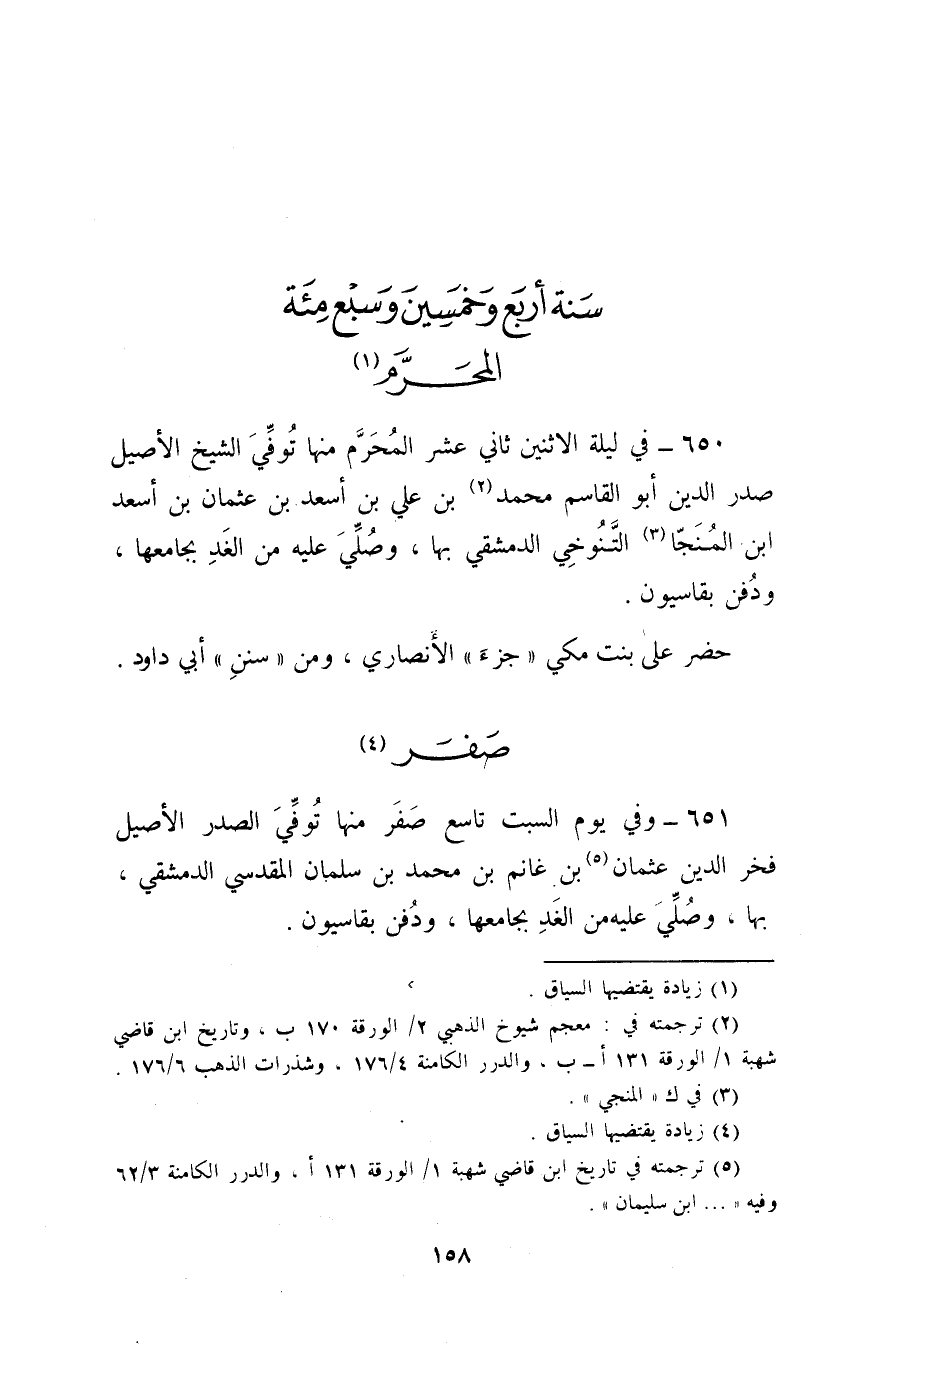 سَنة أربَع وَخمَسِينَ وَسَبْع مِئَة
المحَرَّم (١)
٦٥٠ ـ في ليلة الاثنين ثاني عشر المُحَرَّم منها تُوفِّيَ الشيخ الأصيل
صدر الدين أبو القاسم محمد(٢) بن علي بن أسعد بن عثمان بن أسعد
ابن المُنَجّا(٣) التَّنُوخِي الدمشقي بها ، وصُلِّيَ عليه من الغَدِ بجامعها ،
ودُفن بقاسيون .
حضر على بنت مكي « جزءَ » الأنصاري ، ومن « سننِ » أبي داود .
صَفَر (٤)
٦٥١ ـ وفي يوم السبت تاسع صَفَر منها تُوفِّيَ الصدر الأصيل
فخر الدين عثمان(٥) بن غانم بن محمد بن سلمان المقدسي الدمشقي ،
بها ، وصُلِّيَ عليه من الغَدِ بجامعها ، ودُفن بقاسيون .
(١) زيادة يقتضيها السياق .
(٢) ترجمته في : معجم شيوخ الذهبي ٢/ الورقة ١٧٠ ب ، وتاريخ ابن قاضي
شهبة ١/ الورقة ١٣١ أ ـ ب ، والدرر الكامنة ١٧٦/٤ ، وشذرات الذهب ١٧٦/٦ .
(٣) في ك « المنجي » .
(٤) زيادة يقتضيها السياق .
(٥) ترجمته في تاريخ ابن قاضي شهبة ١/ الورقة ١٣١ أ ، والدرر الكامنة ٦٢/٣
وفيه « ... ابن سليمان » .
١٥٨